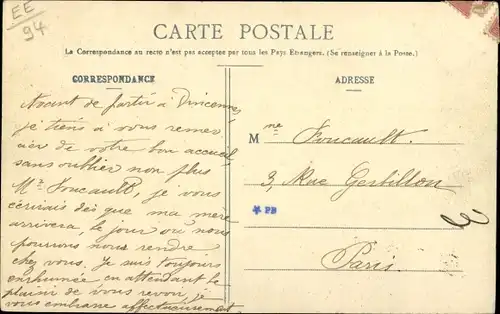 EE
94
CARTE POSTALE
La Correspondance au recto n'est pas acceptée par tous les Pays Etrangers. (Se renseigner à la Poste.)
CORRESPONDANCE
ADRESSE
Avant de partir à Vincennes
je tiens à vous remer
cier de votre bon accueil,
sans oublier non plus
Mr Foucault, je vous
écrirais dès que ma mère
arrivera, le jour où nous
pourrons nous rendre
chez vous. Je suis toujours
enrhumée en attendant le
plaisir de vous revoir, je
vous embrasse affectueusement
Mme Foucault.
3, Rue Gerbillon
* PB
Paris.